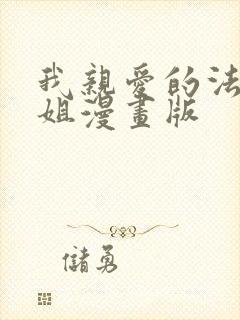 我親愛的法
姐漫畫版
儲勇